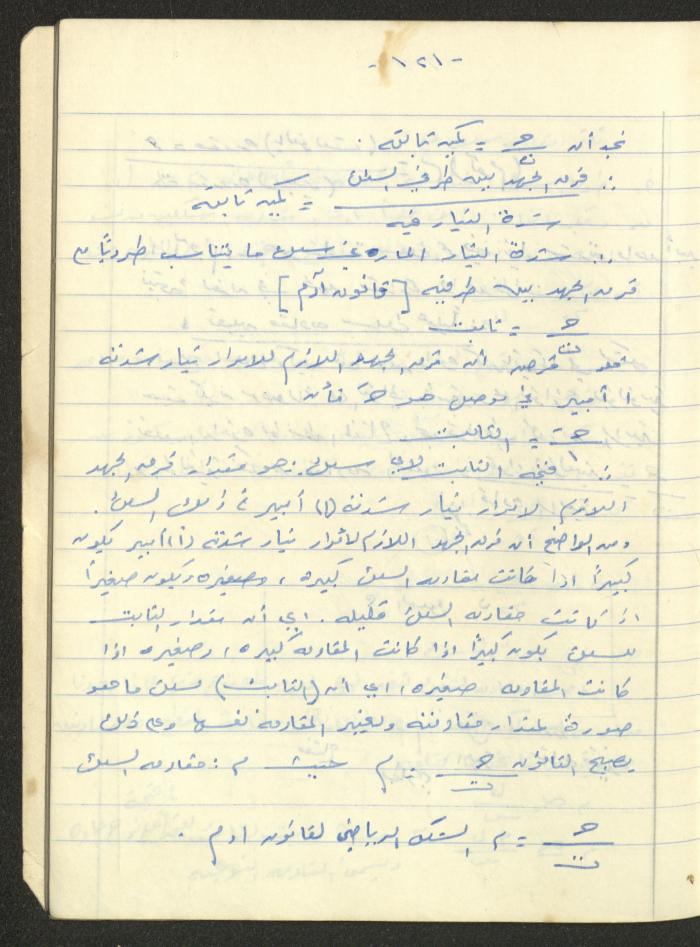 - ١٢١ -
نجد أن حـ/ت = كمية ثابتة .
∴ فرق الجهد بين طرفي السلك / شدة التيار فيه = كمية ثابتة
∴ شدة التيار المارة في سلك ما يتناسب طرديًا مع
فرق الجهد بين طرفيه [ قانون أوم ]
حـ/ت = ثابت
فلو فرض أن فرق الجهد اللازم لامرار تيار شدته
١ أمبير في موصل هو حـَ فأن
حـَ/١ = الثابت
∴ قيمة الثابت لأي سلك : هو مقدار فرق الجهد
اللازم لامرار تيار شدته (١) أمبير في ذلك السلك .
ومن الواضح أن فرق الجهد اللازم لأمرار تيار شدته (١) أمبير يكون
كبيرًا اذا كانت مقاومة السلك كبيره ، وصغيره ويكون صغيرًا
اذ كانت مقاومة السلك قليله . اي أن مقدار الثابت
للسلك يكون كبيرًا اذا كانت المقاومة كبيره ، وصغيره اذا
كانت المقاومه صغيره ، اي أن (الثابت) لسلك ما هو
صورة لمقدار مقاومته وتعتبر المقاومة نفسها وعلى ذلك
يصبح القانون حـ/ت = م حيث م : مقاومه السلك
حـ/ت = م الشكل الرياضي لقانون اوم .